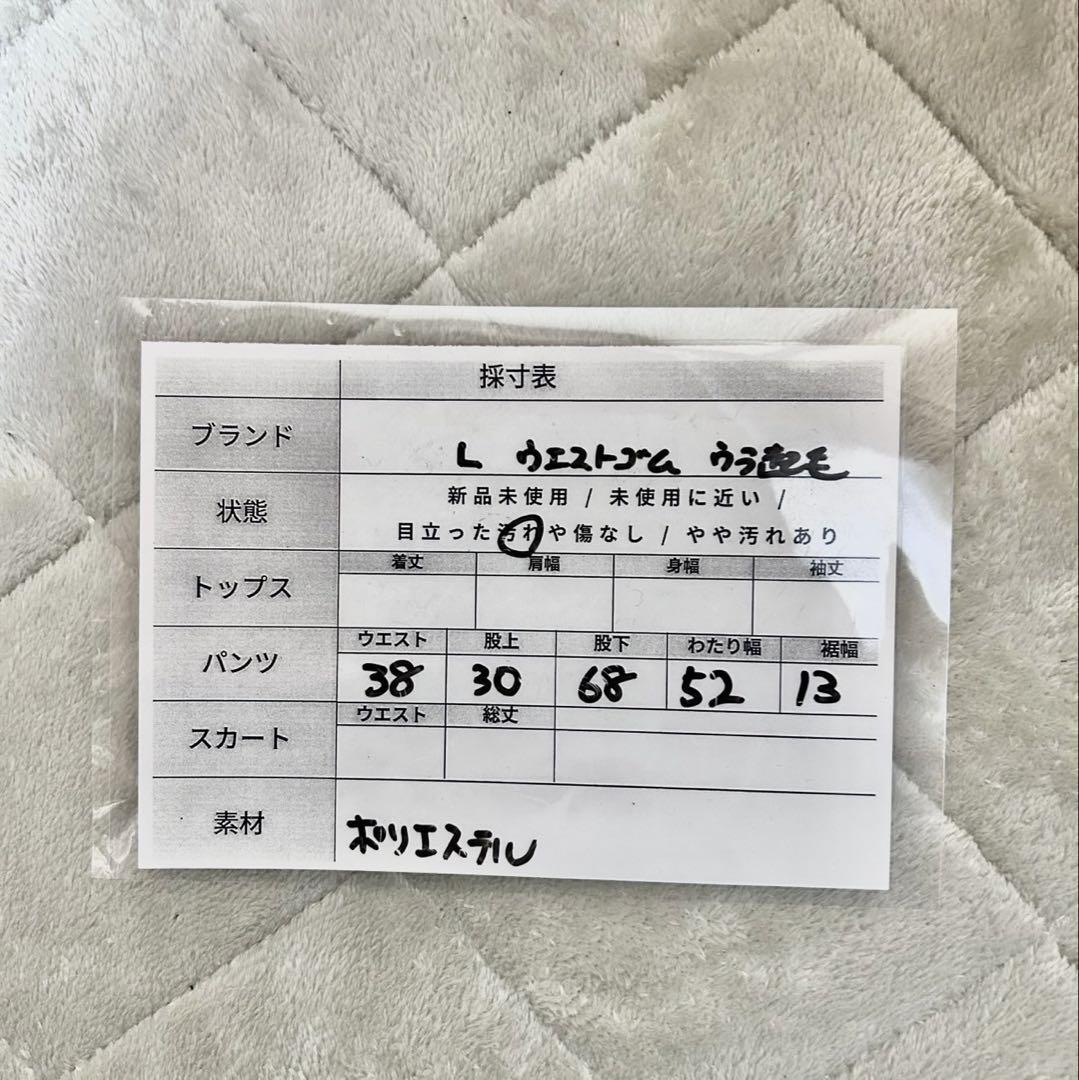 採寸表
ブランド
L ウエストゴム ウラ起毛
状態
新品未使用 / 未使用に近い /
目立った汚れや傷なし / やや汚れあり
トップス
着丈 肩幅 身幅 袖丈
パンツ
ウエスト 股上 股下 わたり幅 裾幅
38 30 68 52 13
スカート
ウエスト 総丈
素材
ポリエステル